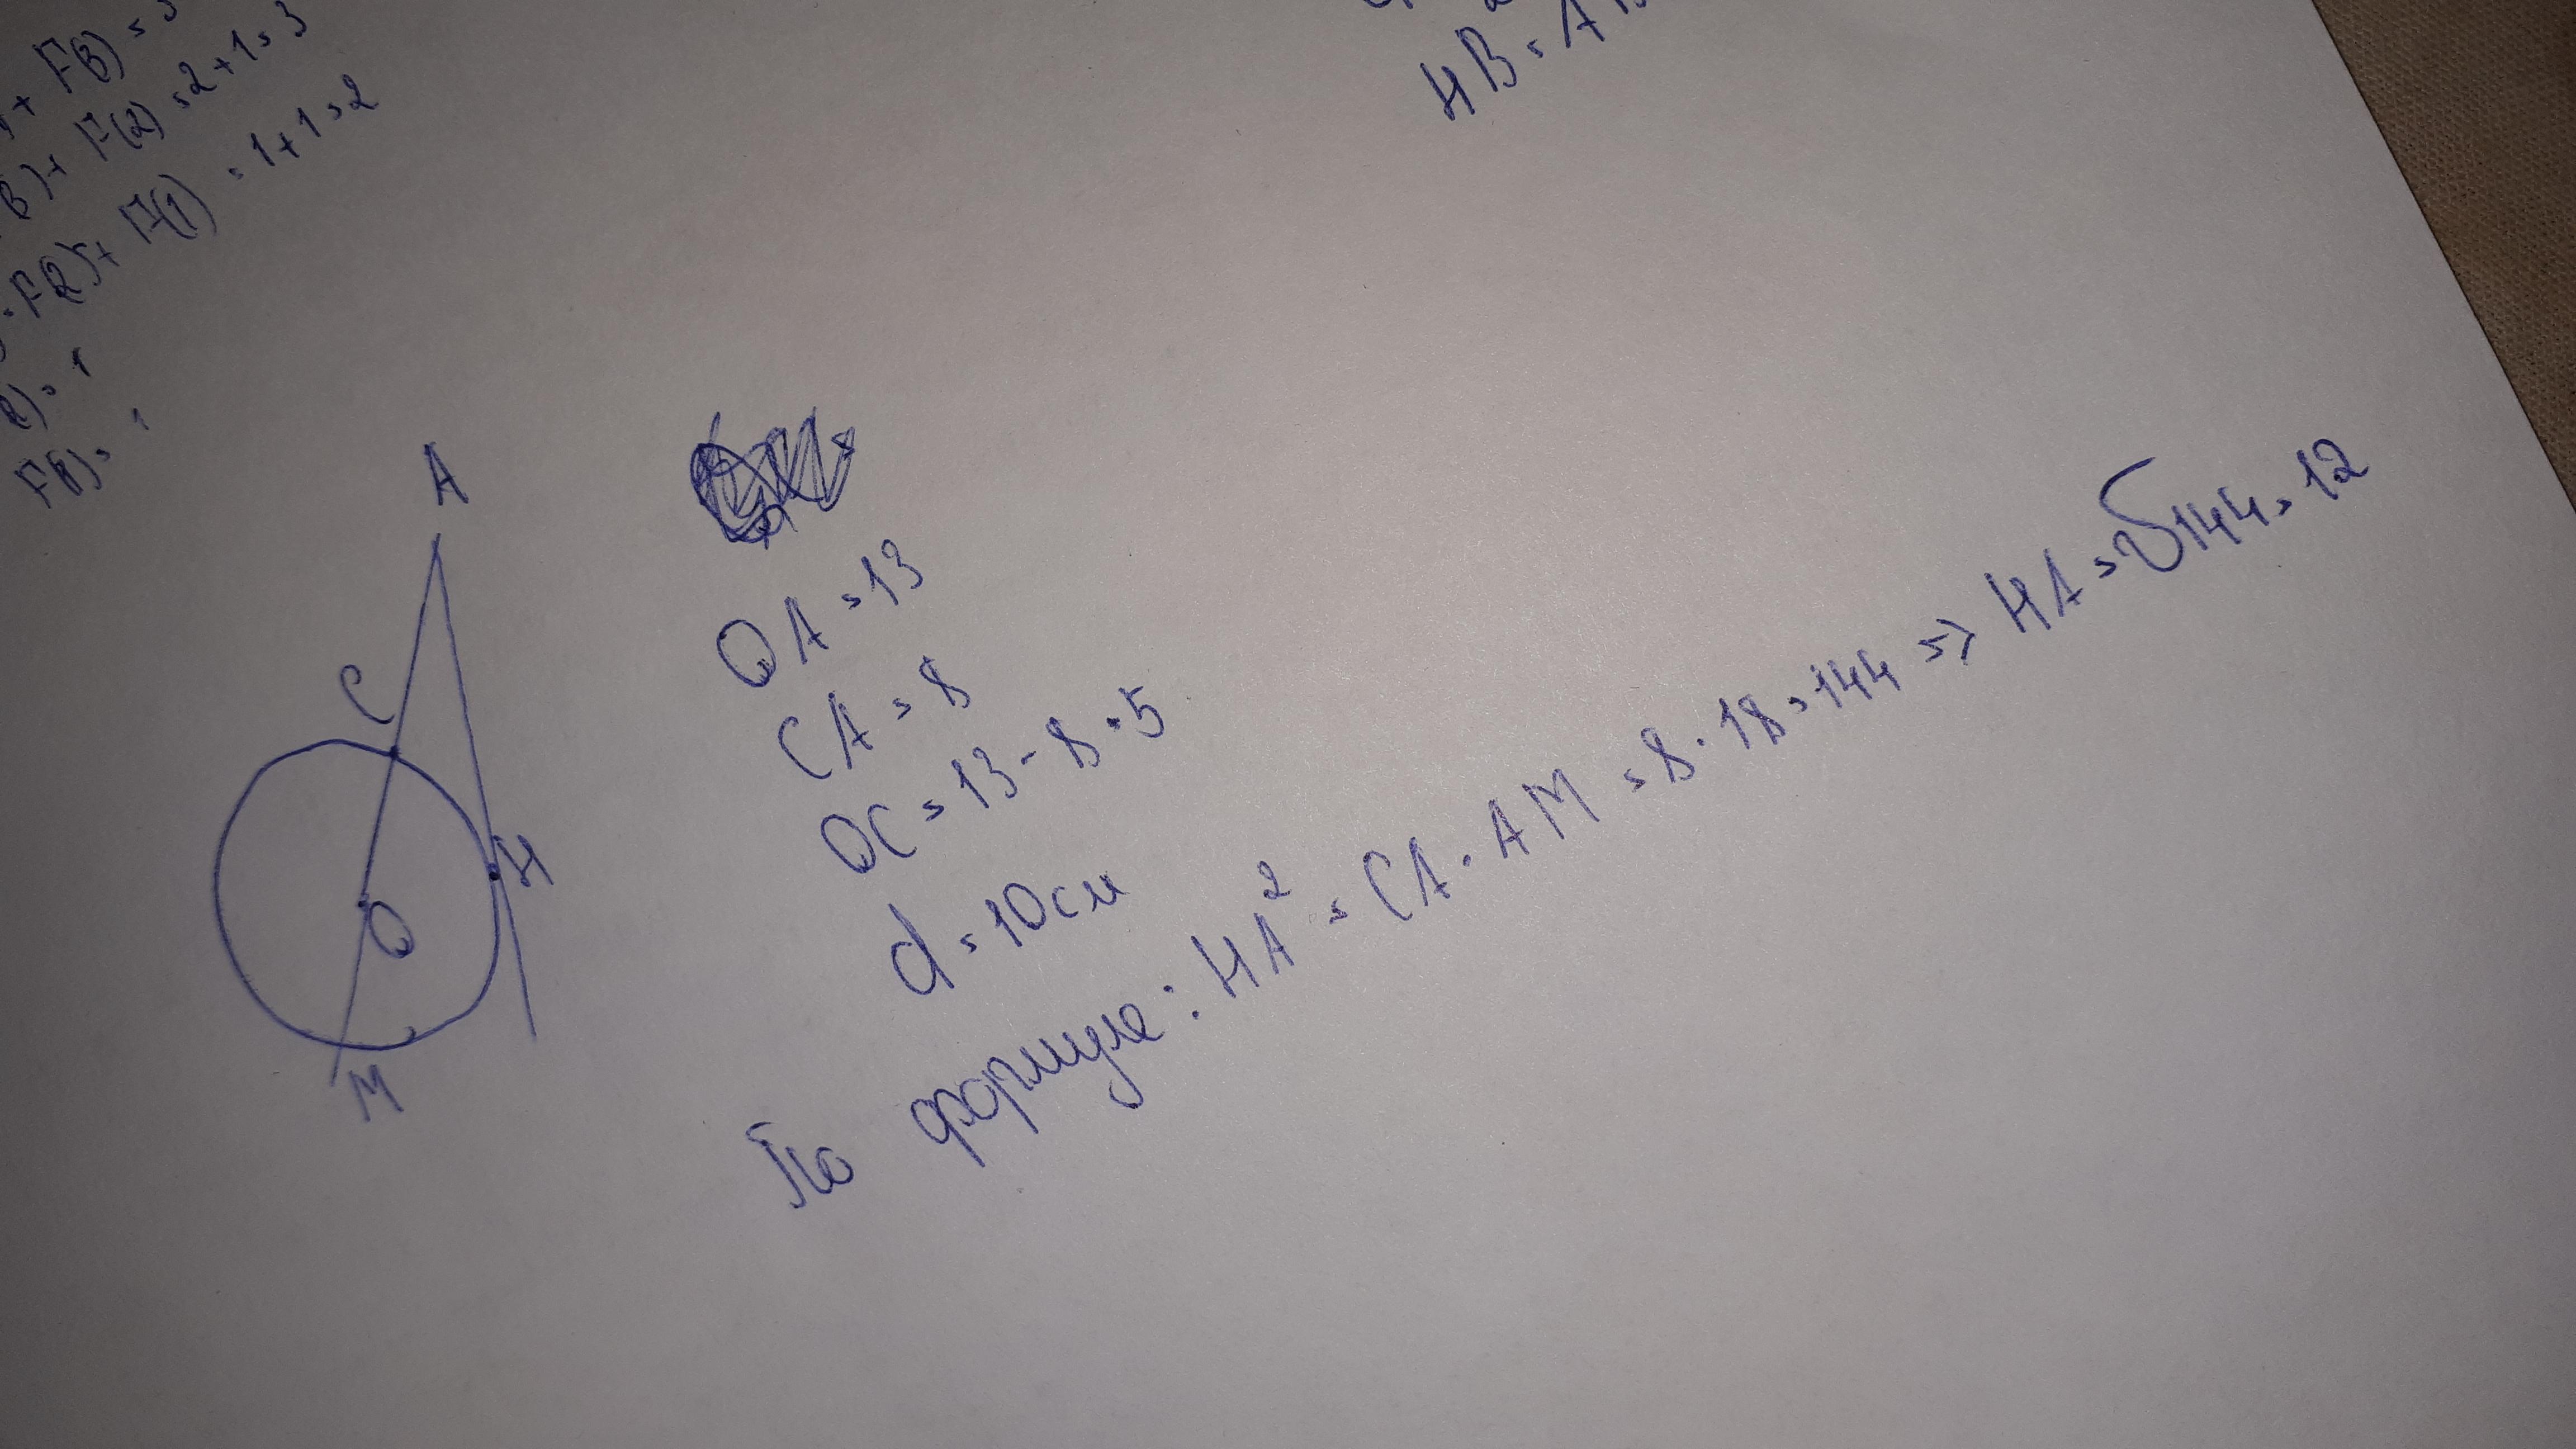 + F(3) = 3
B) + F(2) = 2 + 1 = 3
F(2) + F(1) = 1 + 1 = 2
2) = 1
F(1) =
HB =
A
C
H
O
M
OA = 13
CA = 8
OC = 13 - 8 = 5
d = 10 см
По формуле: HA² = CA · AM = 8 · 18 = 144 => HA = √144 = 12